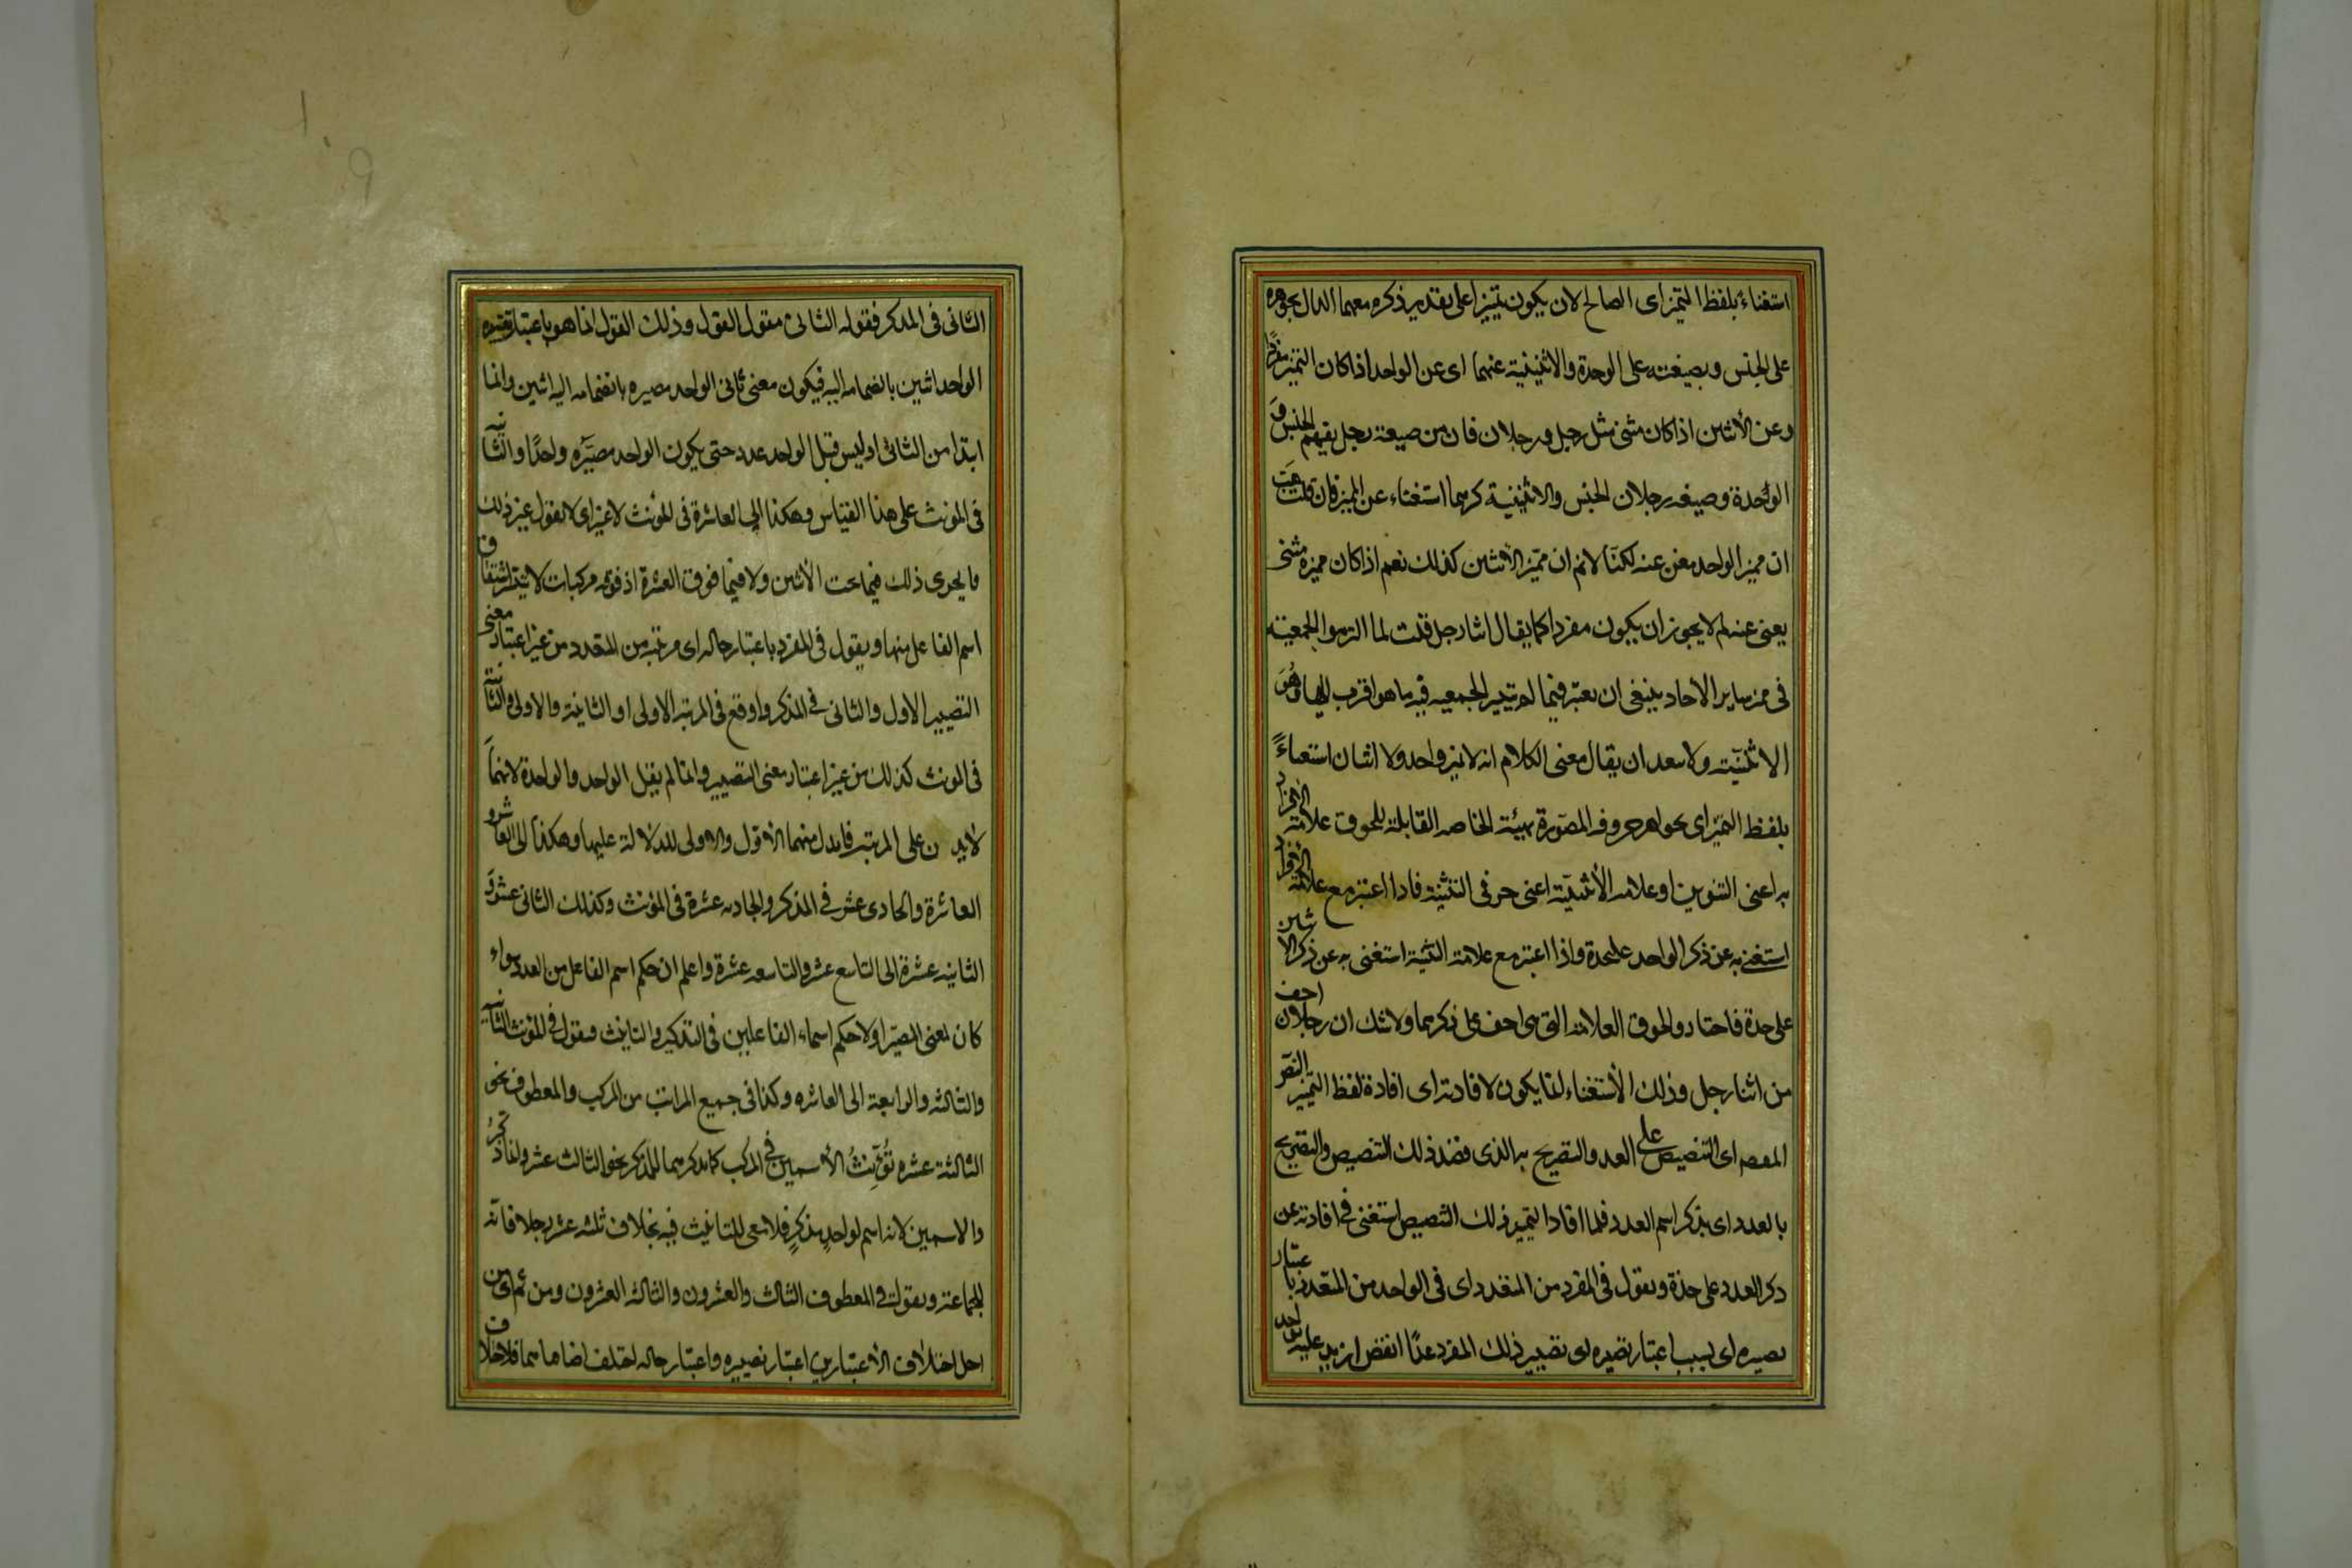 استغناءً بلفظ التميز اى الصالح لان يكون تمييزا على تقدير ذكره معهما الدال بجوهره
على الجنس وبصيغته على الوحدة والاثنينية عنهما اى عن الواحد اذا كان التميز مفردًا
وعن الأثنين اذا كان مثنى مثل رجل ورجلان فان من صيغة رجل يفهم الجنس و
الوحدة وصيغه رجلان الجنس والاثنينية كرهما استغناء عن المميز فان قلت هَب
ان مميز الواحد مغن عنه لكنّا لانم ان مميّز الأثنين كذلك نعم اذا كان مميزه مثنى
يعنى عنه لم لا يجوز ان يكون مفردا كما يقال اثنا رجل قلت لما التزموا الجمعية
فى مميز ساير الاحاد ينبغى ان يعتبر فيما لم يتيسر الجمعيه فيه ما هو اقرب اليها وهُوَ
الاثنينيّة ولا يبعد ان يقال معنى الكلام انه لا يميز واحد ولا اثنان استغناءً
بلفظ التميّز اى بجواهر حروفه المصوّرة بهيئة الخاصه القابلة للحوق علامة الافراد
به اعنى التنوين او علامه الأثنينيّة اعنى حرفى التثنية فاذا اعتبر مع علامة الأفراد
استغنى به عن ذكر الواحد عليحدة واذا اعتبر مع علامة التثنية استغنى به عن ذكر الاثنين
على حدة فاختار و الحوق العلامة التى هى اخف على ذكرهما ولا شك ان رجلان اخف
من اثنا رجل وذلك الأستغناء انما يكون لافادته اى افادة لفظ التميز النصّ
المقصود اى التنصيص على العدد والتصريح به الذى قصد ذلك التنصيص والتصريح
بالعدد اى بذكر اسم العدد فلما افاد التميز ذلك التنصيص استغنى فى افادته عن
ذكر العدد على حدة ويقول فى المفرد من المتعدد اى فى الواحد من المتعدد باعتبار
تصييره اى بسبب اعتبار تصييره اى تصيير ذلك المفرد عددًا انقص ازيد عليه بواحد
الثانى فى المذكر فقوله الثانى مقول القول وذلك القول انما هو باعتبار تصييره
الواحد اثنين بانضمامه اليه فيكون معنى ثانى الواحد مصيره بانضمامه اليه اثنين وانما
ابتدا من الثانى اذ ليس قبل الواحد عدد حتى يكون الواحد مصيّره واحدًا والثانية
فى المونث على هذا القياس وهكذا الى العاشرة فى المونث لا غير اى لا يقول غير ذلك
فا يجرى ذلك فيما تحت الأثنين ولا فيما فوق العشرة اذ فوقه مركبات لا يتيسر اشتقاق
اسم الفاعل منها ويقول فى المفرد باعتبار حاله اى مرتبته من المتعدد من غير اعتبار معنى
التصيير الاول والثانى فى المذكر واوقع فى المرتبه الاولى او الثانية والاولى والثانية
فى المونث كذلك من غير اعتبار معنى التصيير وانما لم يقل الواحد والواحدة لانهما
لا يدلان على المرتبه فابدل منهما الأوّل والاولى للدلالة عليها وهكذا الى العاشر و
العاشرة والحادى عشر فى المذكر والحاديه عشرة فى المؤنث وكذلك الثانى عشر و
الثانيه عشرة الى التاسع عشر والتاسعه عشرة واعلم ان حكم اسم الفاعل من العدد سواء
كان بمعنى المصيّر اولا حكم اسماء الفاعلين فى التذكير والتانيث فيقول فى المؤنث الثانية
والثالثه والرابعة الى العاشره وكذا فى جميع المراتب من المركب والمعطوف نحو
الثالثة عشره تؤنّث الأسمين فى المركب كما تذكرهما للمذكر نحو الثالث عشر وانما ذكّر
والاسمين لانه اسم لواحد مذكر فلا معنى للتانيث فيه بخلاف ثلثه عشر رجلا فانه
للجماعة ويقول فى المعطوف الثالث والعشرون والثالثه العشرون ومن ثم اى من
اجل اختلاف الأعتبارين اعتبار تصييره واعتبار حاله اختلف اضافاهما فلاختلاف